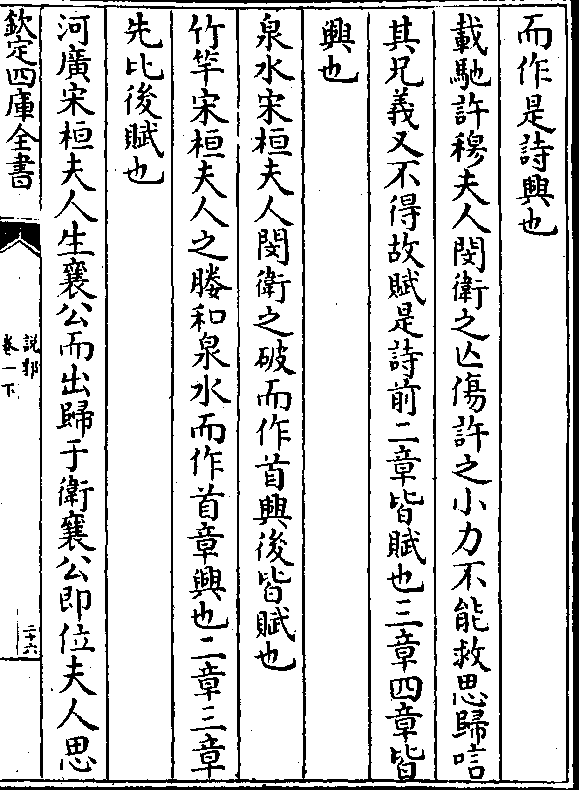 而作是詩興也
載馳許穆夫人閔衛之亾傷許之小力不能救思歸唁
其兄義又不得故賦是詩前二章皆賦也三章四章皆
興也
泉水宋桓夫人閔衛之破而作首興後皆賦也
竹竿宋桓夫人之媵和泉水而作首章興也二章三章
先比後賦也
河廣宋桓夫人生襄公而出歸于衛襄公即位夫人思
欽定四庫全書
說郛
卷一下
二十六